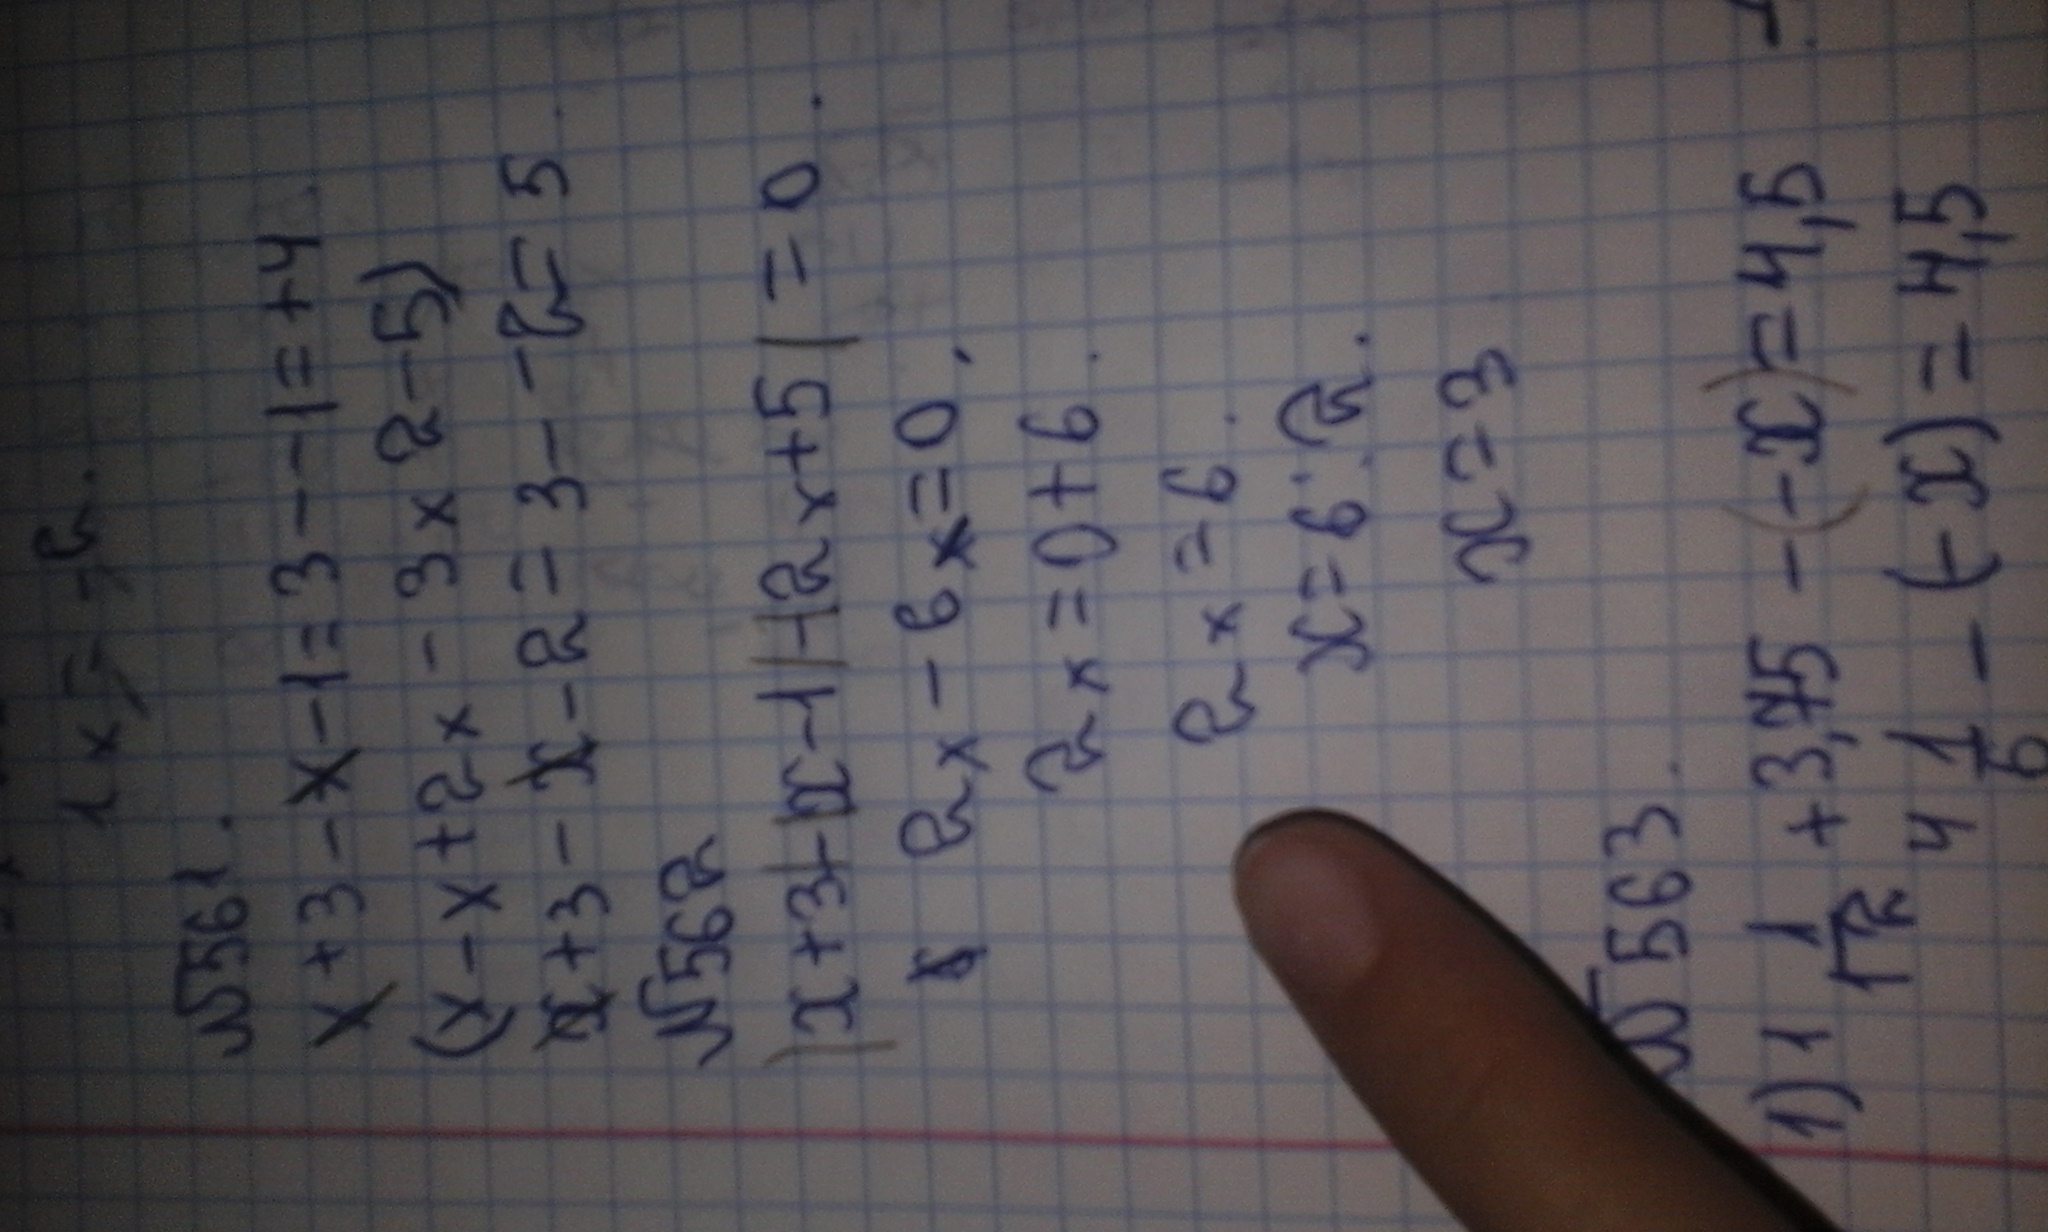 №561.
x+3-x-1=3--1=+4.
(x-x+2x-3x2-5)
x+3-x-2=3--2=5.
№562
|x+3|-|x-1|-|2x+5|=0.
2x-6x=0.
2x=0+6.
2x=6.
x=6:2.
x=3
№563.
1) 1 1/12 +3,75-(-x)=4,5
4 1/6 -(-x)=4,5